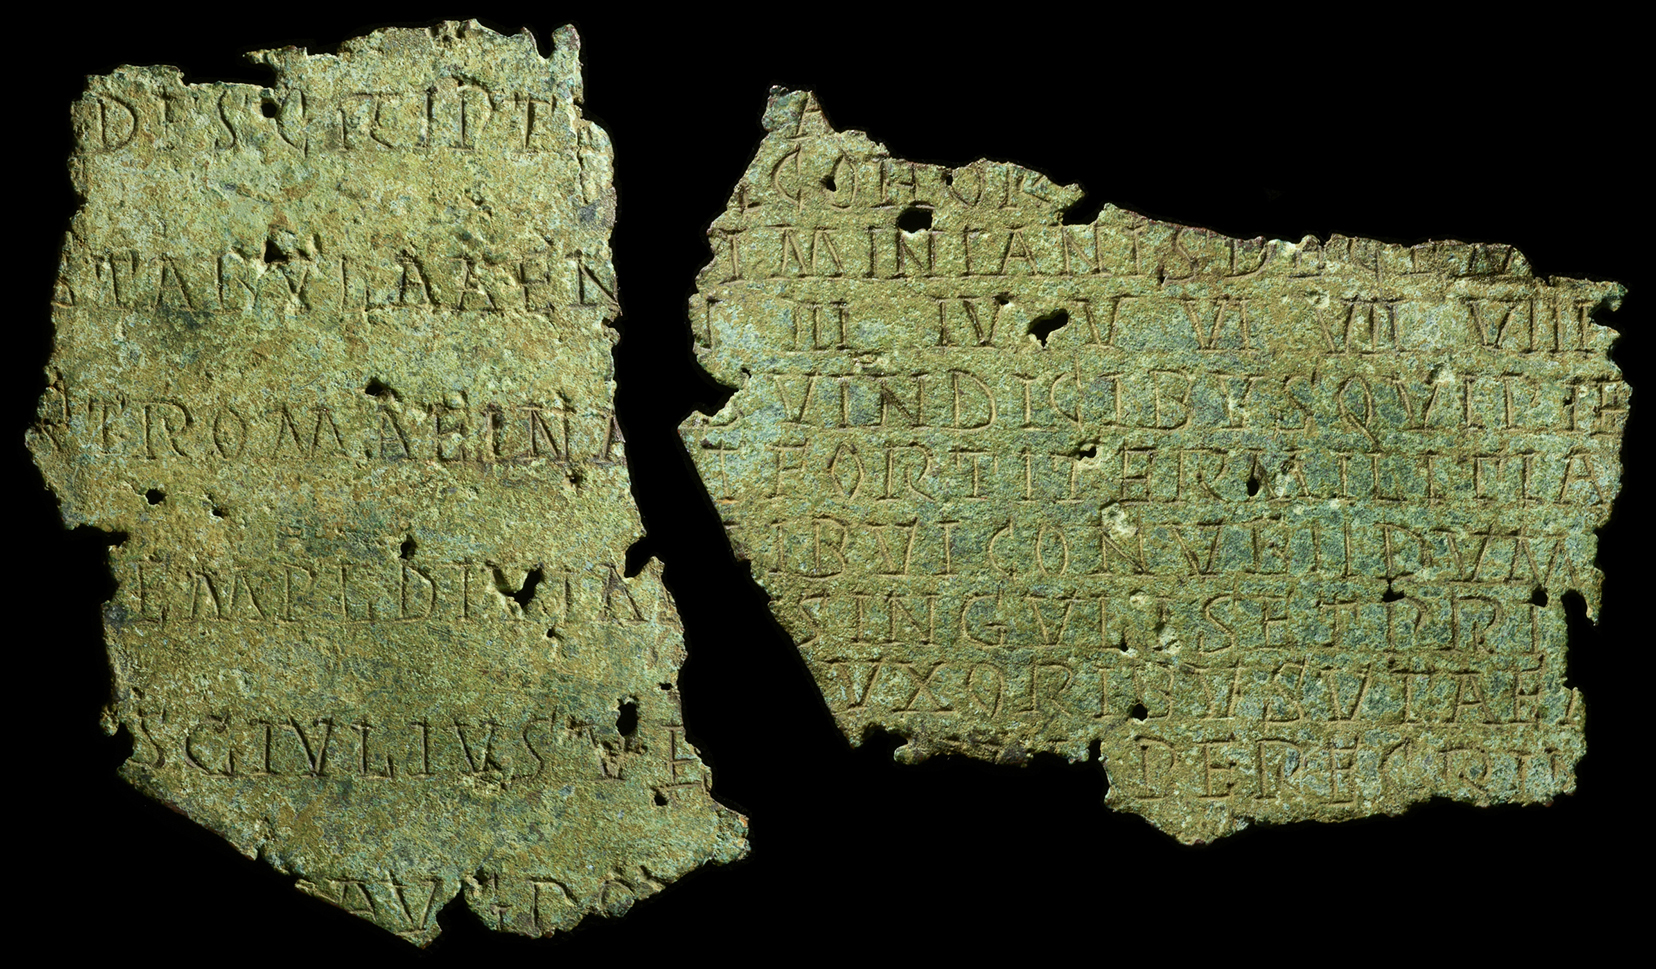 DESCRIPT
TABVLAAEN
TROMAEINA
EMPLDIVIA
SGIVLIVSVE
AVG PO
A
COHOR
TMINIANISDECIMV
I III IV V VI VII VIII
VINDICIBVSQVIPR
TFORTITERMILITIA
IBVICONVEIIPVM
SINGVLISETPRI
VXORIBVSVTAE
PEREGRIN